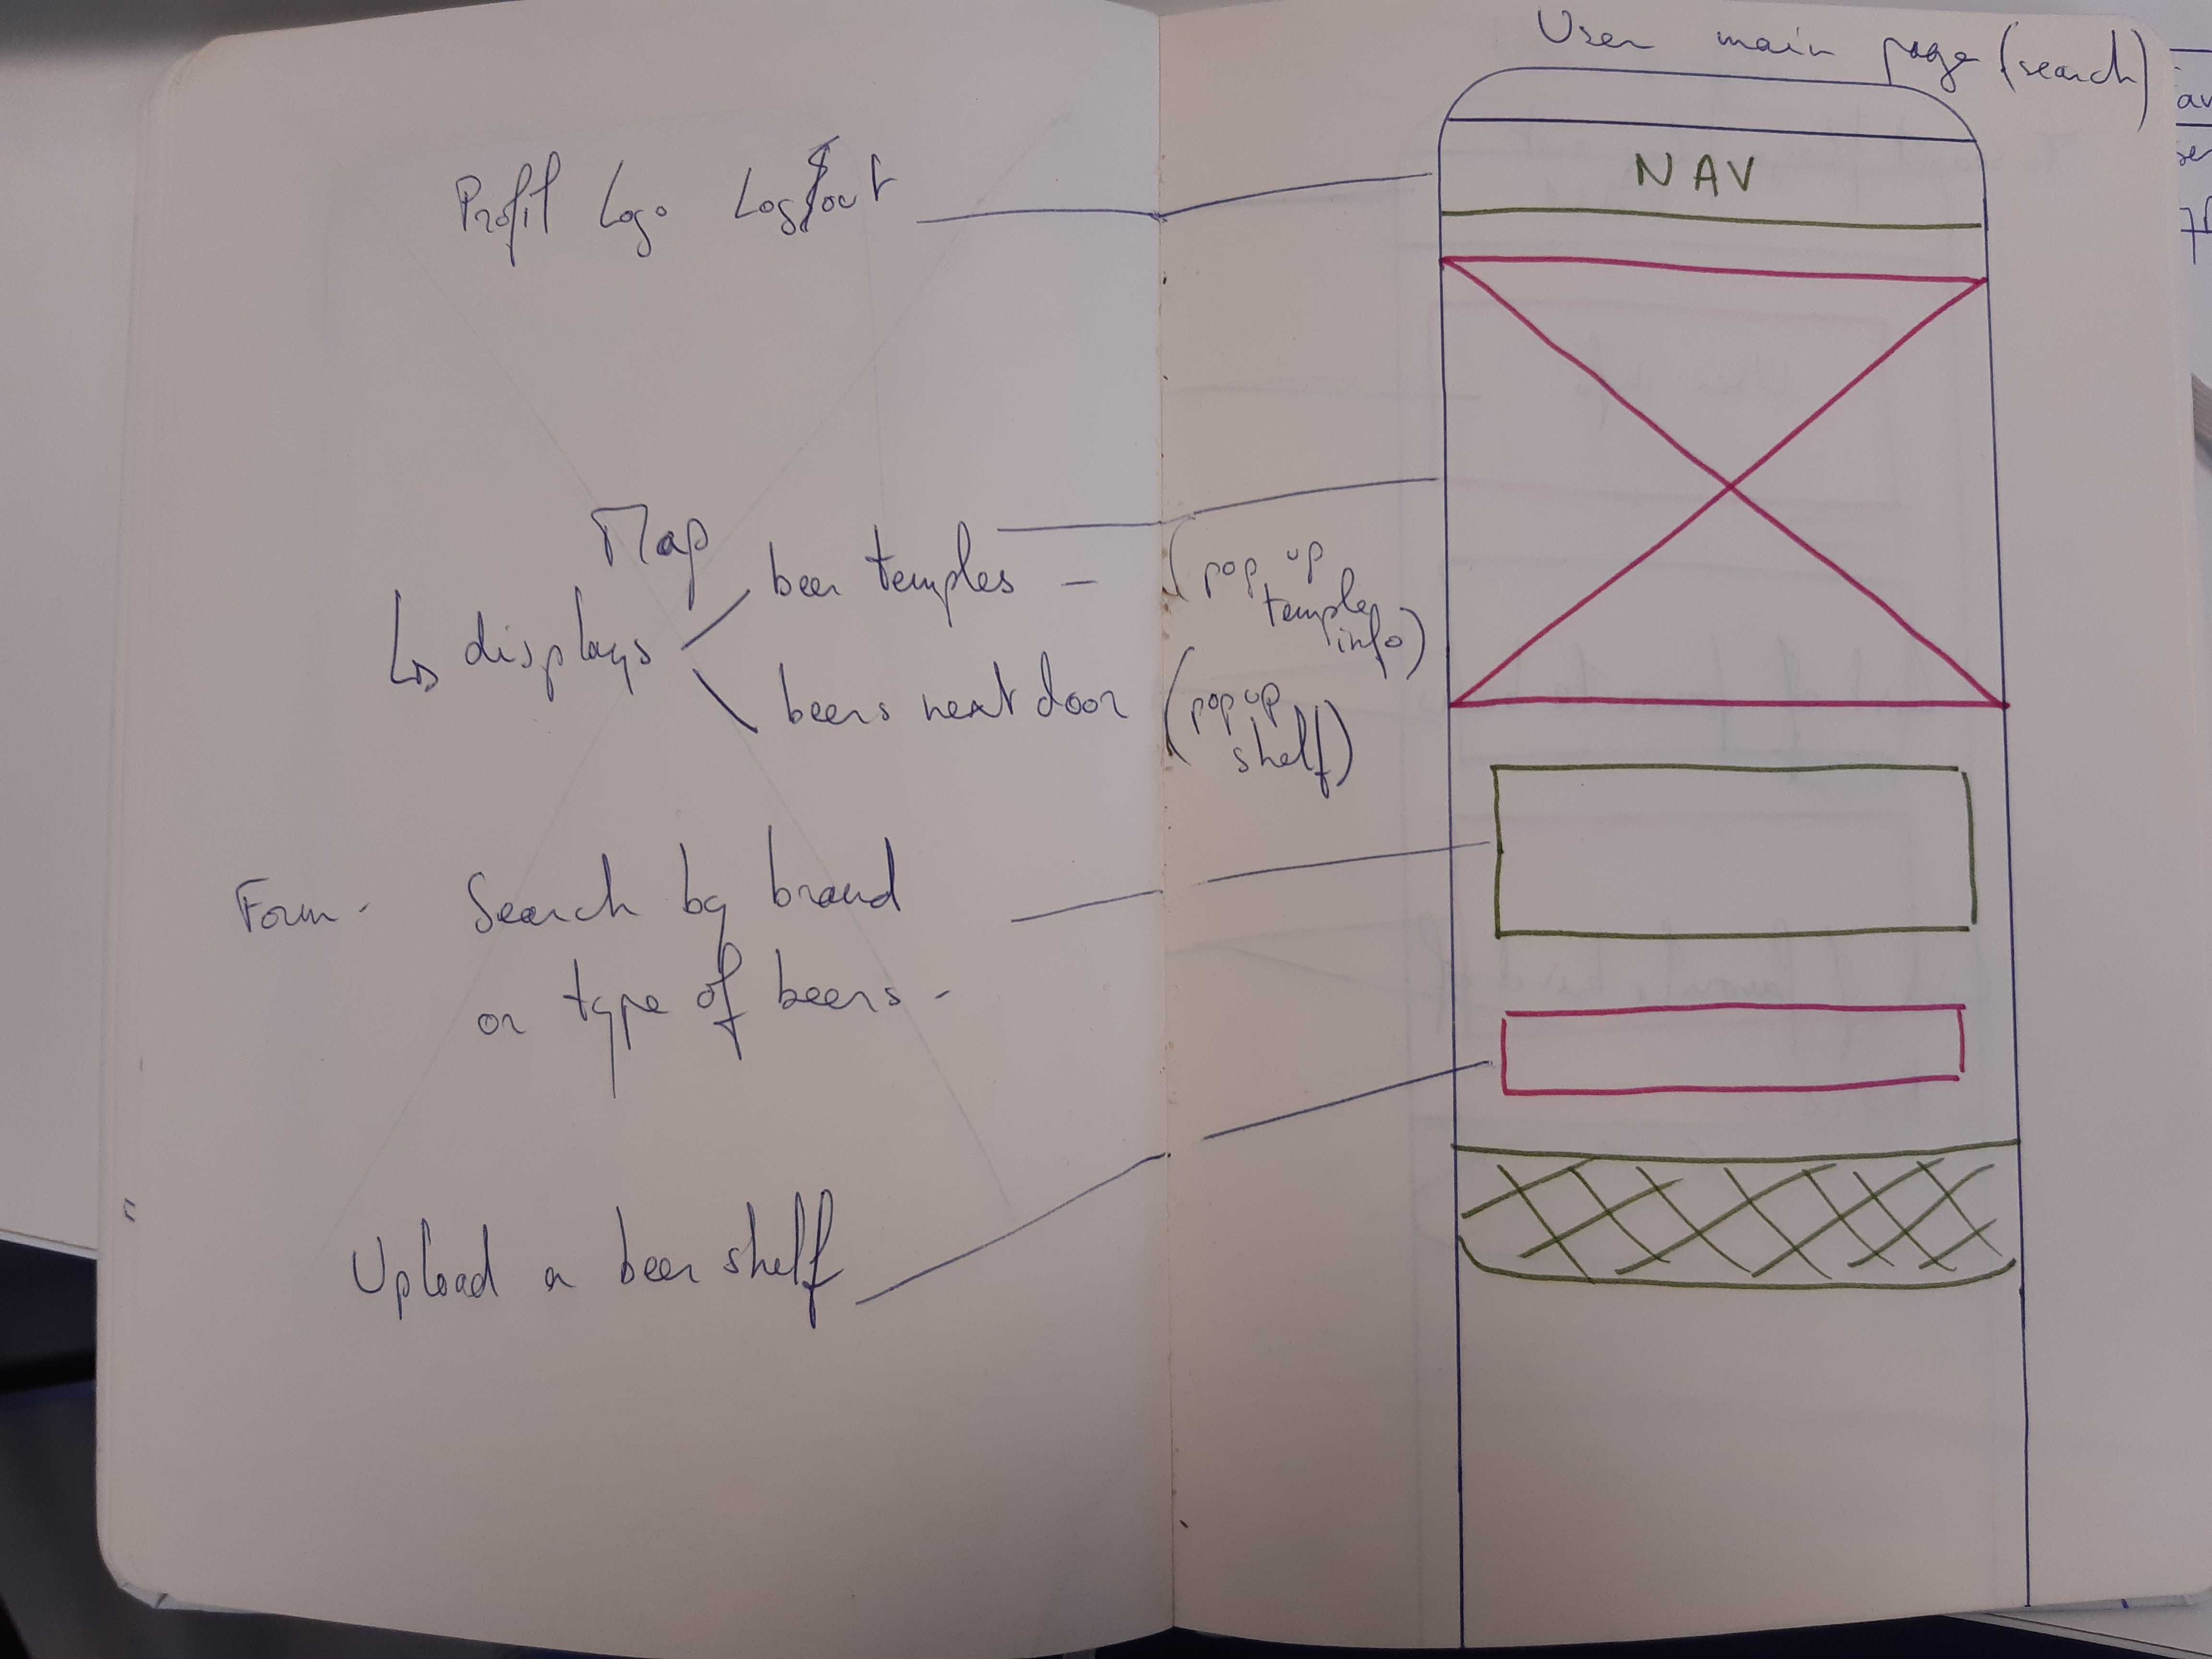 User main page (search)
NAV
Profil Logo Logout
Map
↳ displays
beer temples - (pop up
temple
info)
beers next door (pop up
shelf)
Form - Search by brand
or type of beers -
Upload a beer shelf